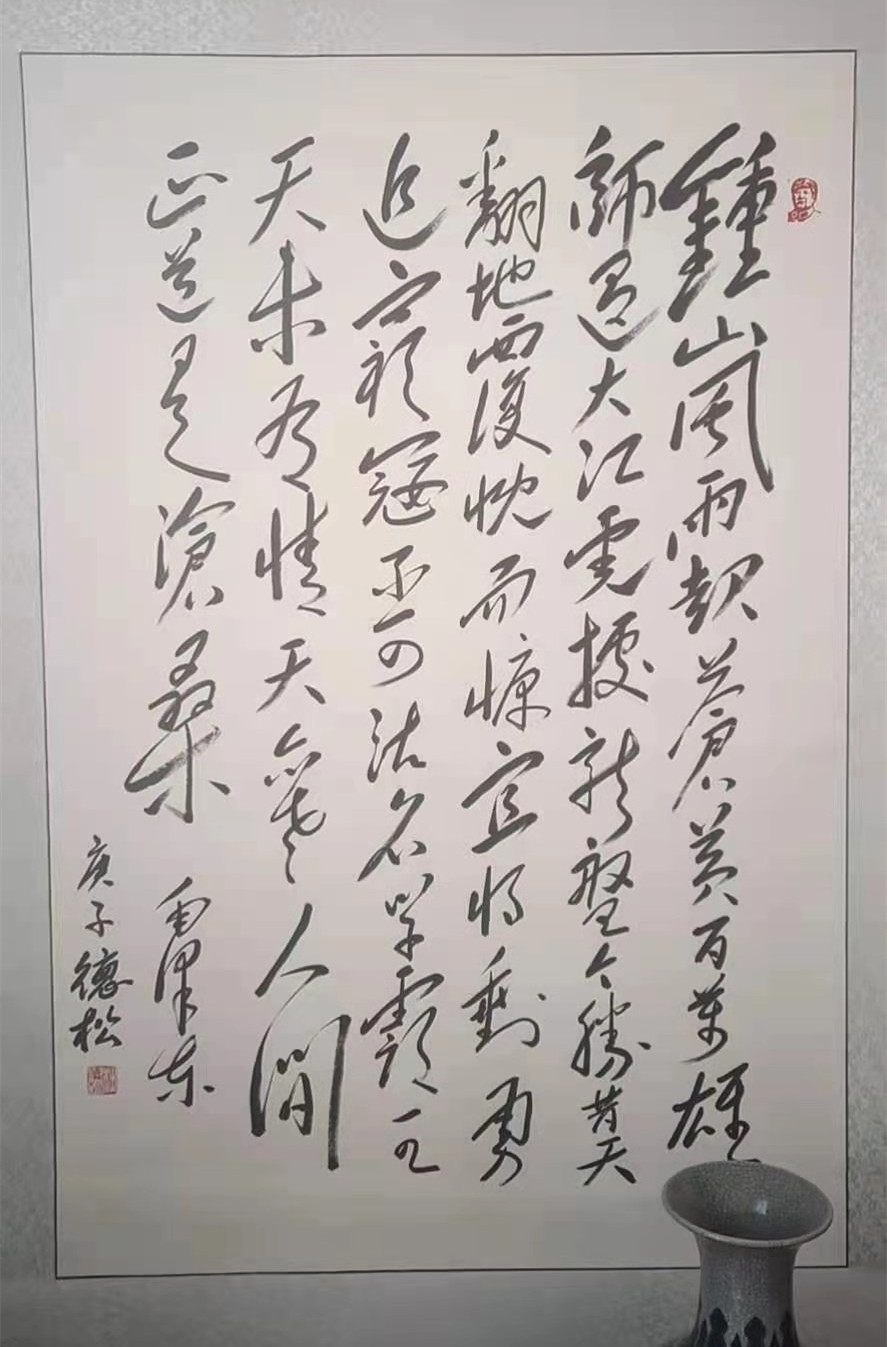 鍾山風雨起蒼黃百萬雄
師過大江虎據龍盤今勝昔天
翻地覆慨而慷宜将剩勇
追窮寇不可沽名學霸王
天若有情天亦老人間
正道是滄桑 毛澤东
庚子德松